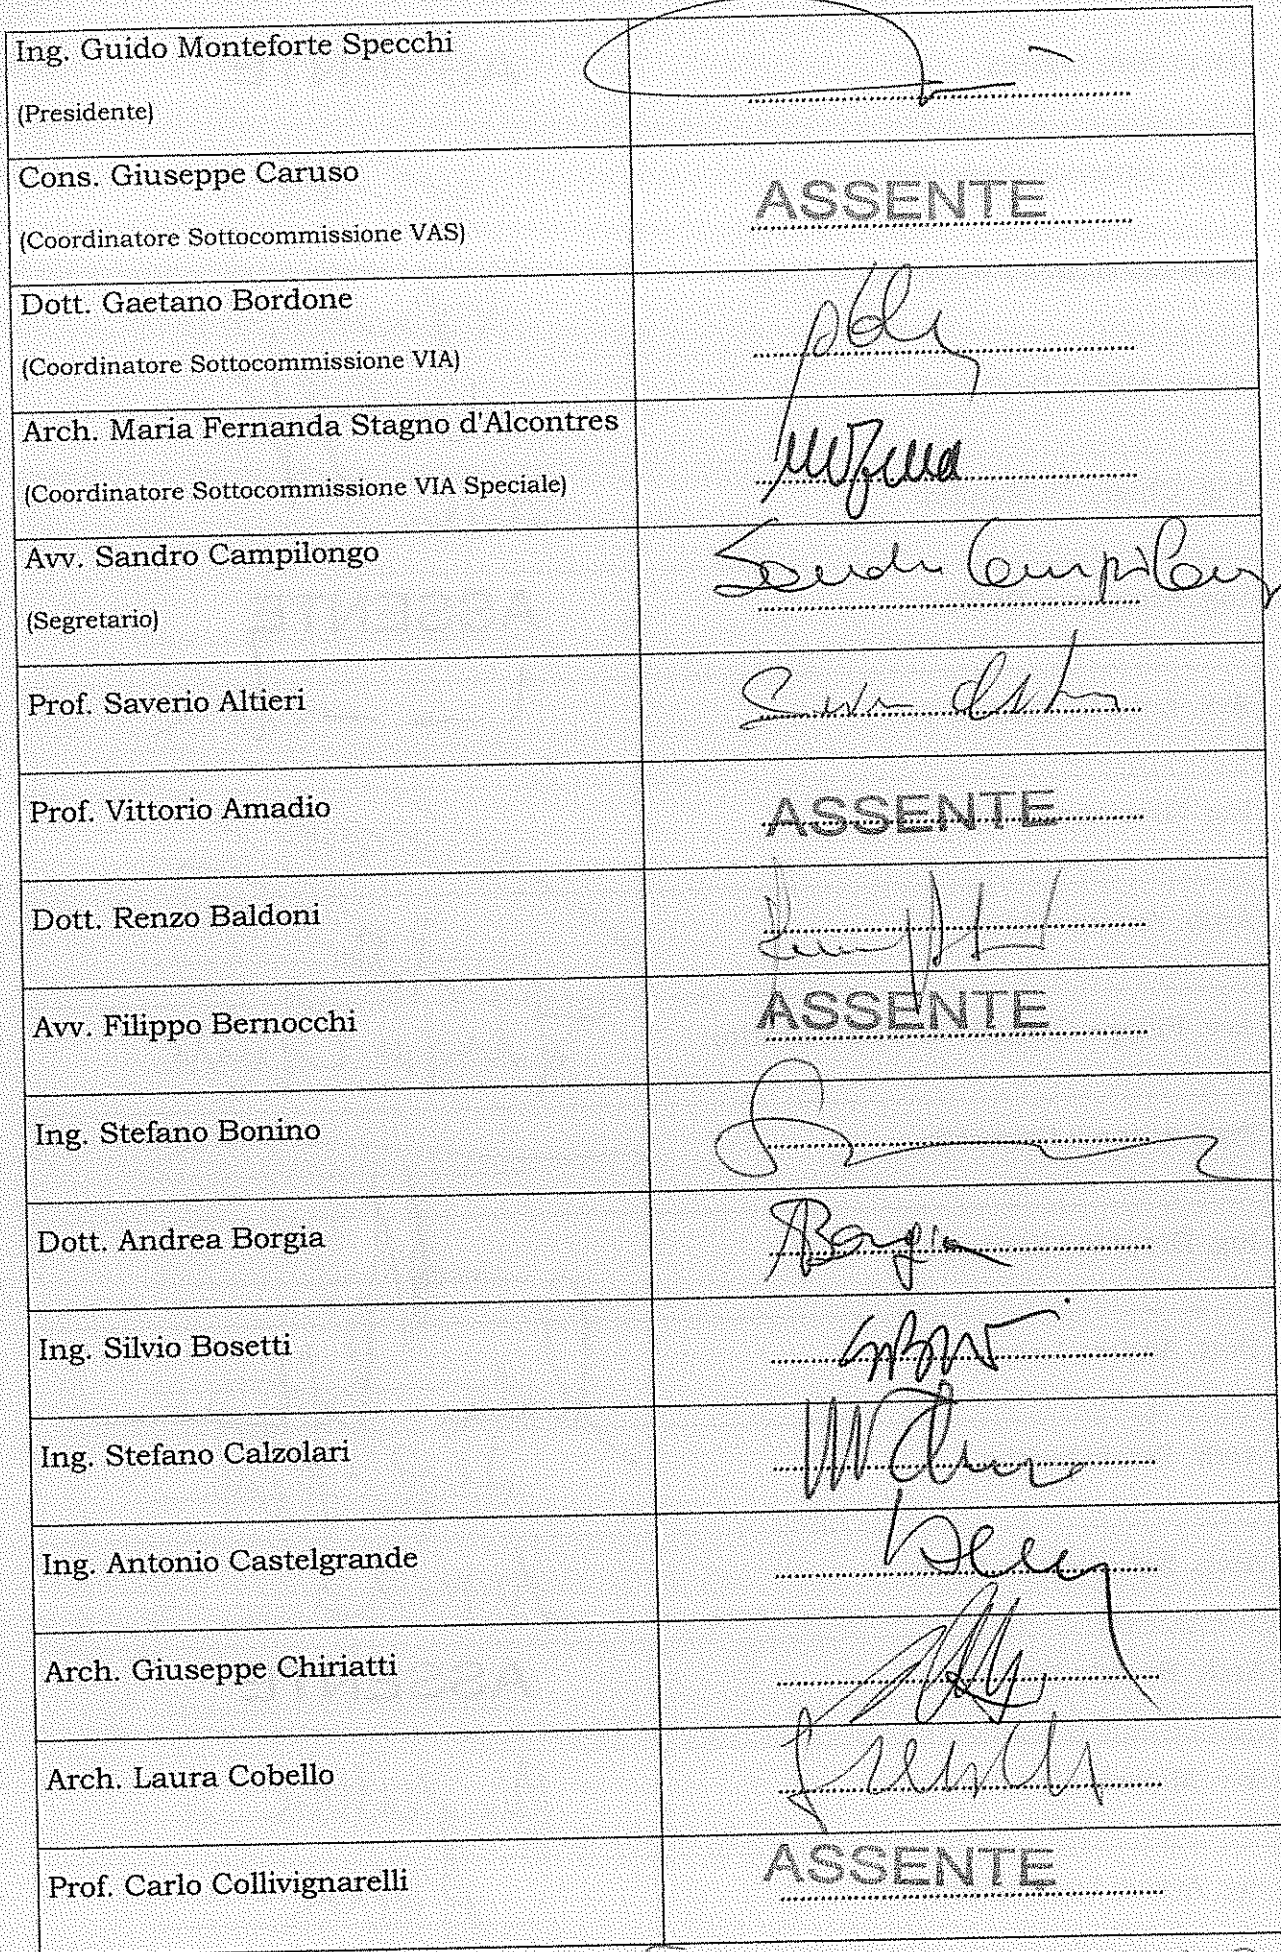 Ing. Guido Monteforte Specchi
(Presidente)
Cons. Giuseppe Caruso
ASSENTE
(Coordinatore Sottocommissione VAS)
Dott. Gaetano Bordone
(Coordinatore Sottocommissione VIA)
Arch. Maria Fernanda Stagno d'Alcontres
(Coordinatore Sottocommissione VIA Speciale)
Avv. Sandro Campilongo
(Segretario)
Prof. Saverio Altieri
Prof. Vittorio Amadio
ASSENTE
Dott. Renzo Baldoni
Avv. Filippo Bernocchi
ASSENTE
Ing. Stefano Bonino
Dott. Andrea Borgia
Ing. Silvio Bosetti
Ing. Stefano Calzolari
Ing. Antonio Castelgrande
Arch. Giuseppe Chiriatti
Arch. Laura Cobello
Prof. Carlo Collivignarelli
ASSENTE